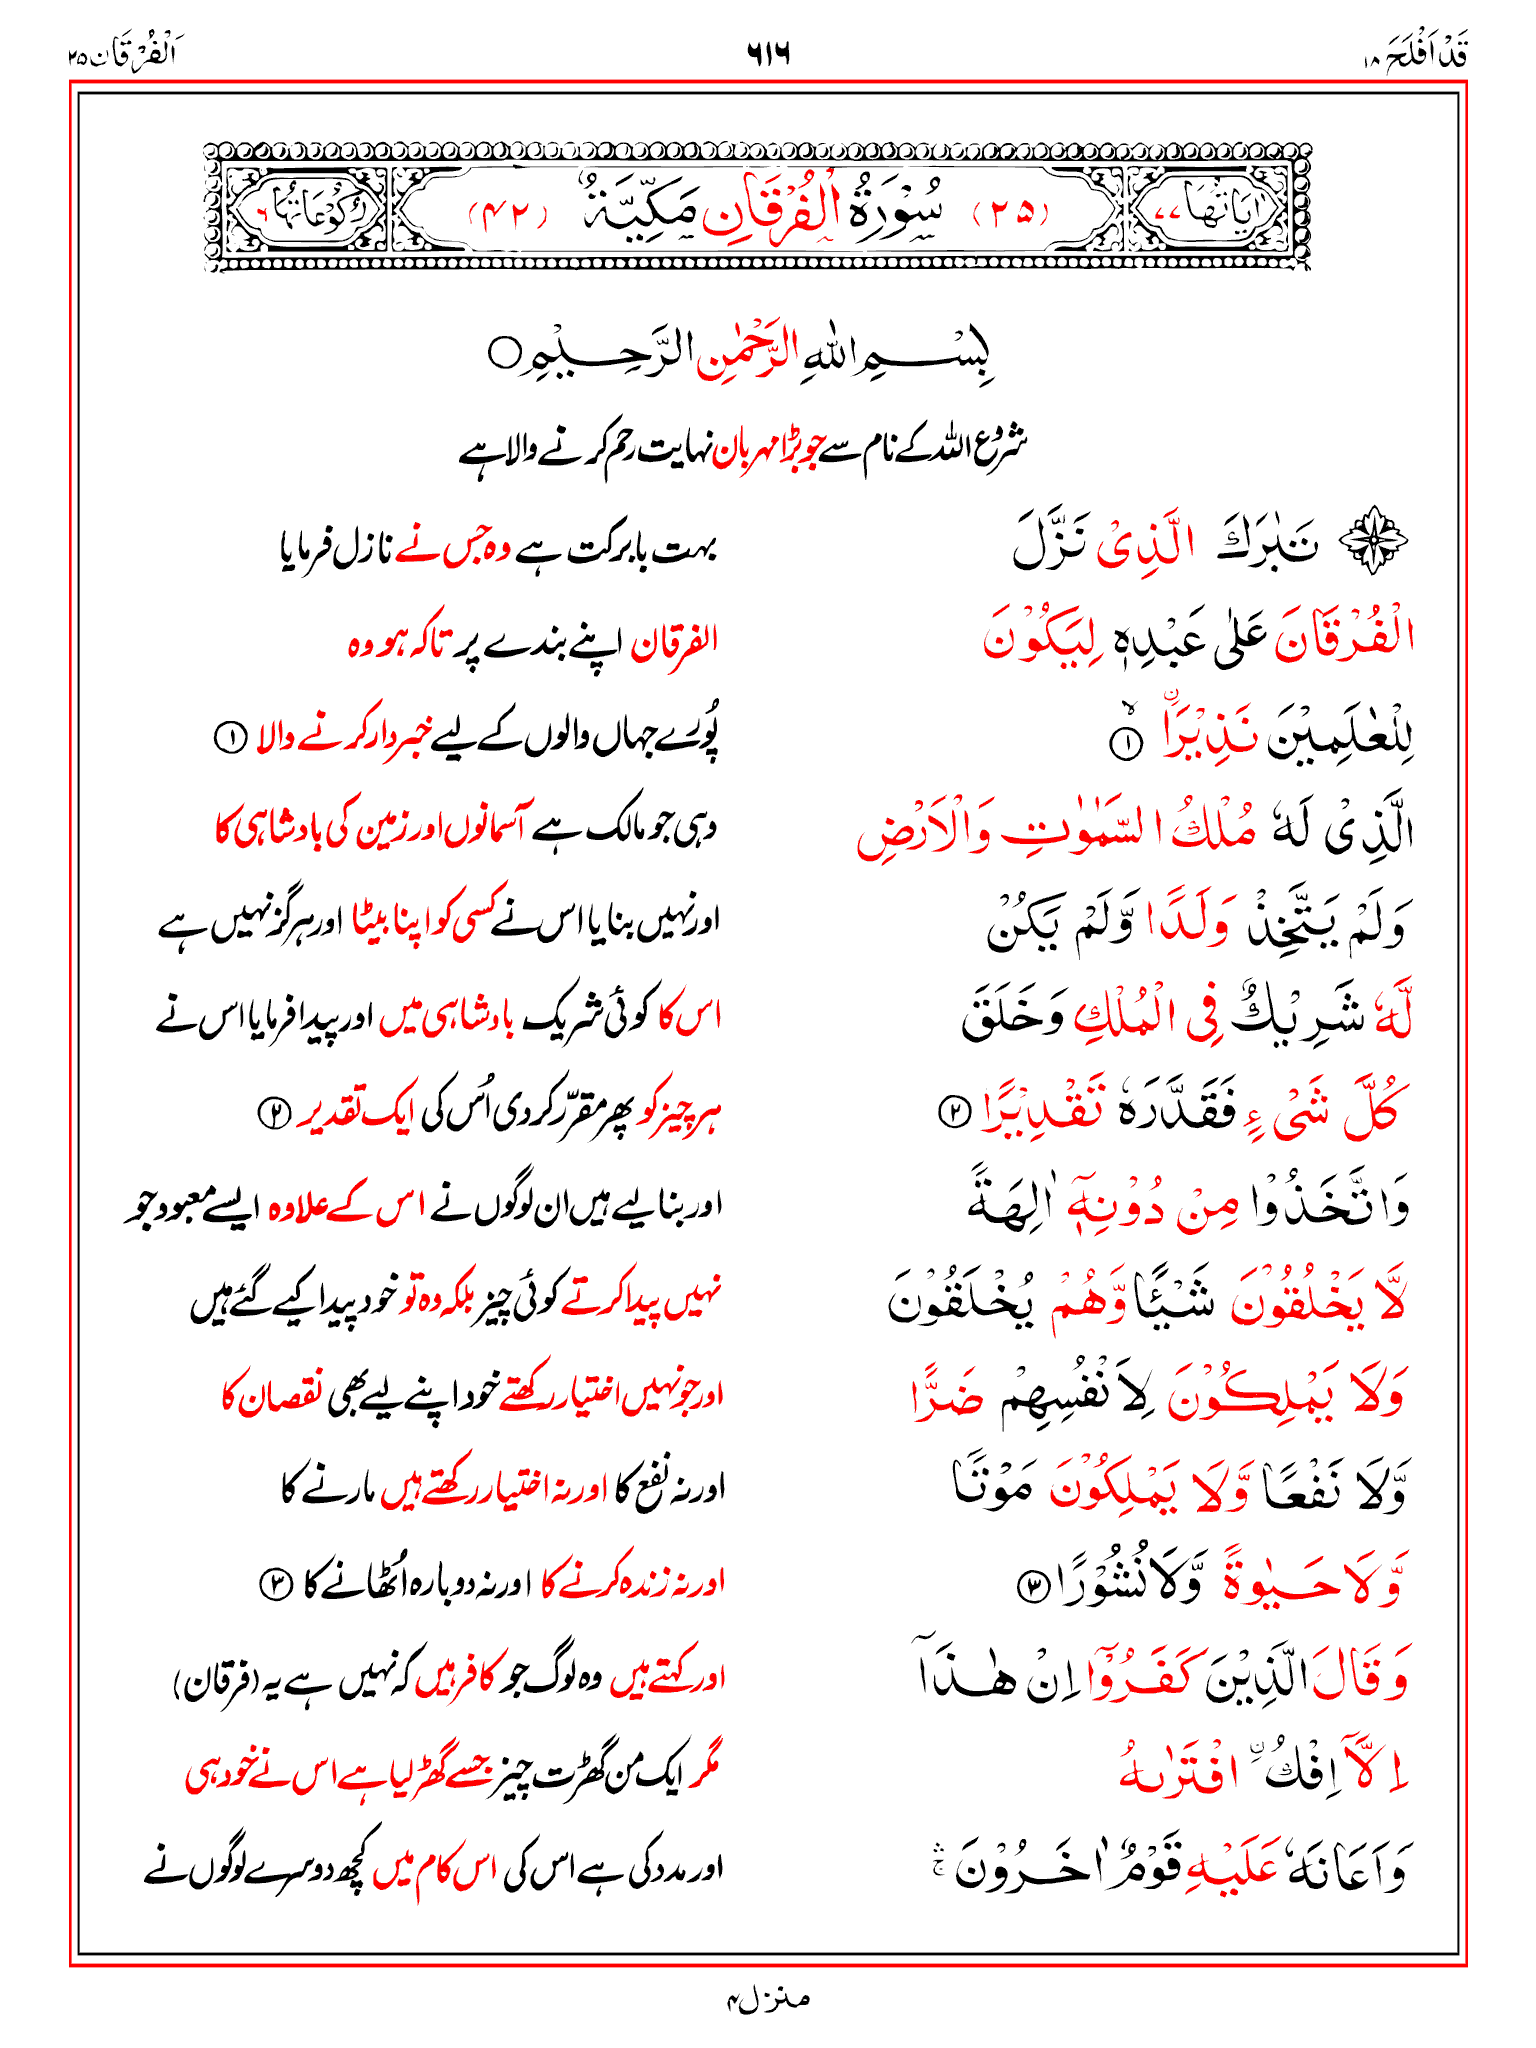 قَدْ اَفْلَحَ ۱۸
۶۱۶
اَلْفُرْقَان ۲۵
اٰيَاتُهَا ۷۷
(۲۵) سُوْرَةُ الْفُرْقَانِ مَكِّيَّةٌ (۴۲)
رُكُوْعَاتُهَا ۶
بِسْمِ اللّٰهِ الرَّحْمٰنِ الرَّحِيْمِ ○
شروع اللہ کے نام سے جو بڑا مہربان نہایت رحم کرنے والا ہے
تَبٰرَكَ الَّذِىْ نَزَّلَ
بہت بابرکت ہے وہ جس نے نازل فرمایا
الْفُرْقَانَ عَلٰى عَبْدِهٖ لِيَكُوْنَ
الفرقان اپنے بندے پر تاکہ ہو وہ
لِلْعٰلَمِيْنَ نَذِيْرَاۨ ۙ‏ ①
پُورے جہاں والوں کے لیے خبردار کرنے والا ①
الَّذِىْ لَهٗ مُلْكُ السَّمٰوٰتِ وَالْاَرْضِ
وہی جو مالک ہے آسمانوں اور زمین کی بادشاہی کا
وَلَمْ يَتَّخِذْ وَلَدًا وَّلَمْ يَكُنْ
اور نہیں بنایا اس نے کسی کو اپنا بیٹا اور ہرگز نہیں ہے
لَّهٗ شَرِيْكٌ فِى الْمُلْكِ وَخَلَقَ
اس کا کوئی شریک بادشاہی میں اور پیدا فرمایا اس نے
كُلَّ شَىْءٍ فَقَدَّرَهٗ تَقْدِيْرًا ②
ہر چیز کو پھر مقرّر کر دی اُس کی ایک تقدیر ②
وَاتَّخَذُوْا مِنْ دُوْنِهٖۤ اٰلِهَةً
اور بنا لیے ہیں ان لوگوں نے اس کے علاوہ ایسے معبود جو
لَّا يَخْلُقُوْنَ شَيْـًٔا وَّهُمْ يُخْلَقُوْنَ
نہیں پیدا کرتے کوئی چیز بلکہ وہ تو خود پیدا کیے گئے ہیں
وَلَا يَمْلِكُوْنَ لِاَنْفُسِهِمْ ضَرًّا
اور جو نہیں اختیار رکھتے خود اپنے لیے بھی نقصان کا
وَّلَا نَفْعًا وَّلَا يَمْلِكُوْنَ مَوْتًا
اور نہ نفع کا اور نہ اختیار رکھتے ہیں مارنے کا
وَّلَا حَيٰوةً وَّلَا نُشُوْرًا ③
اور نہ زندہ کرنے کا اور نہ دوبارہ اُٹھانے کا ③
وَقَالَ الَّذِيْنَ كَفَرُوْۤا اِنْ هٰذَاۤ
اور کہتے ہیں وہ لوگ جو کافر ہیں کہ نہیں ہے یہ (فرقان)
اِلَّاۤ اِفْكُ ۨ افْتَرٰىهُ
مگر ایک من گھڑت چیز جسے گھڑ لیا ہے اس نے خود ہی
وَاَعَانَهٗ عَلَيْهِ قَوْمٌ اٰخَرُوْنَ ۛۚ
اور مدد کی ہے اس کی اس کام میں کچھ دوسرے لوگوں نے
منزل ۴